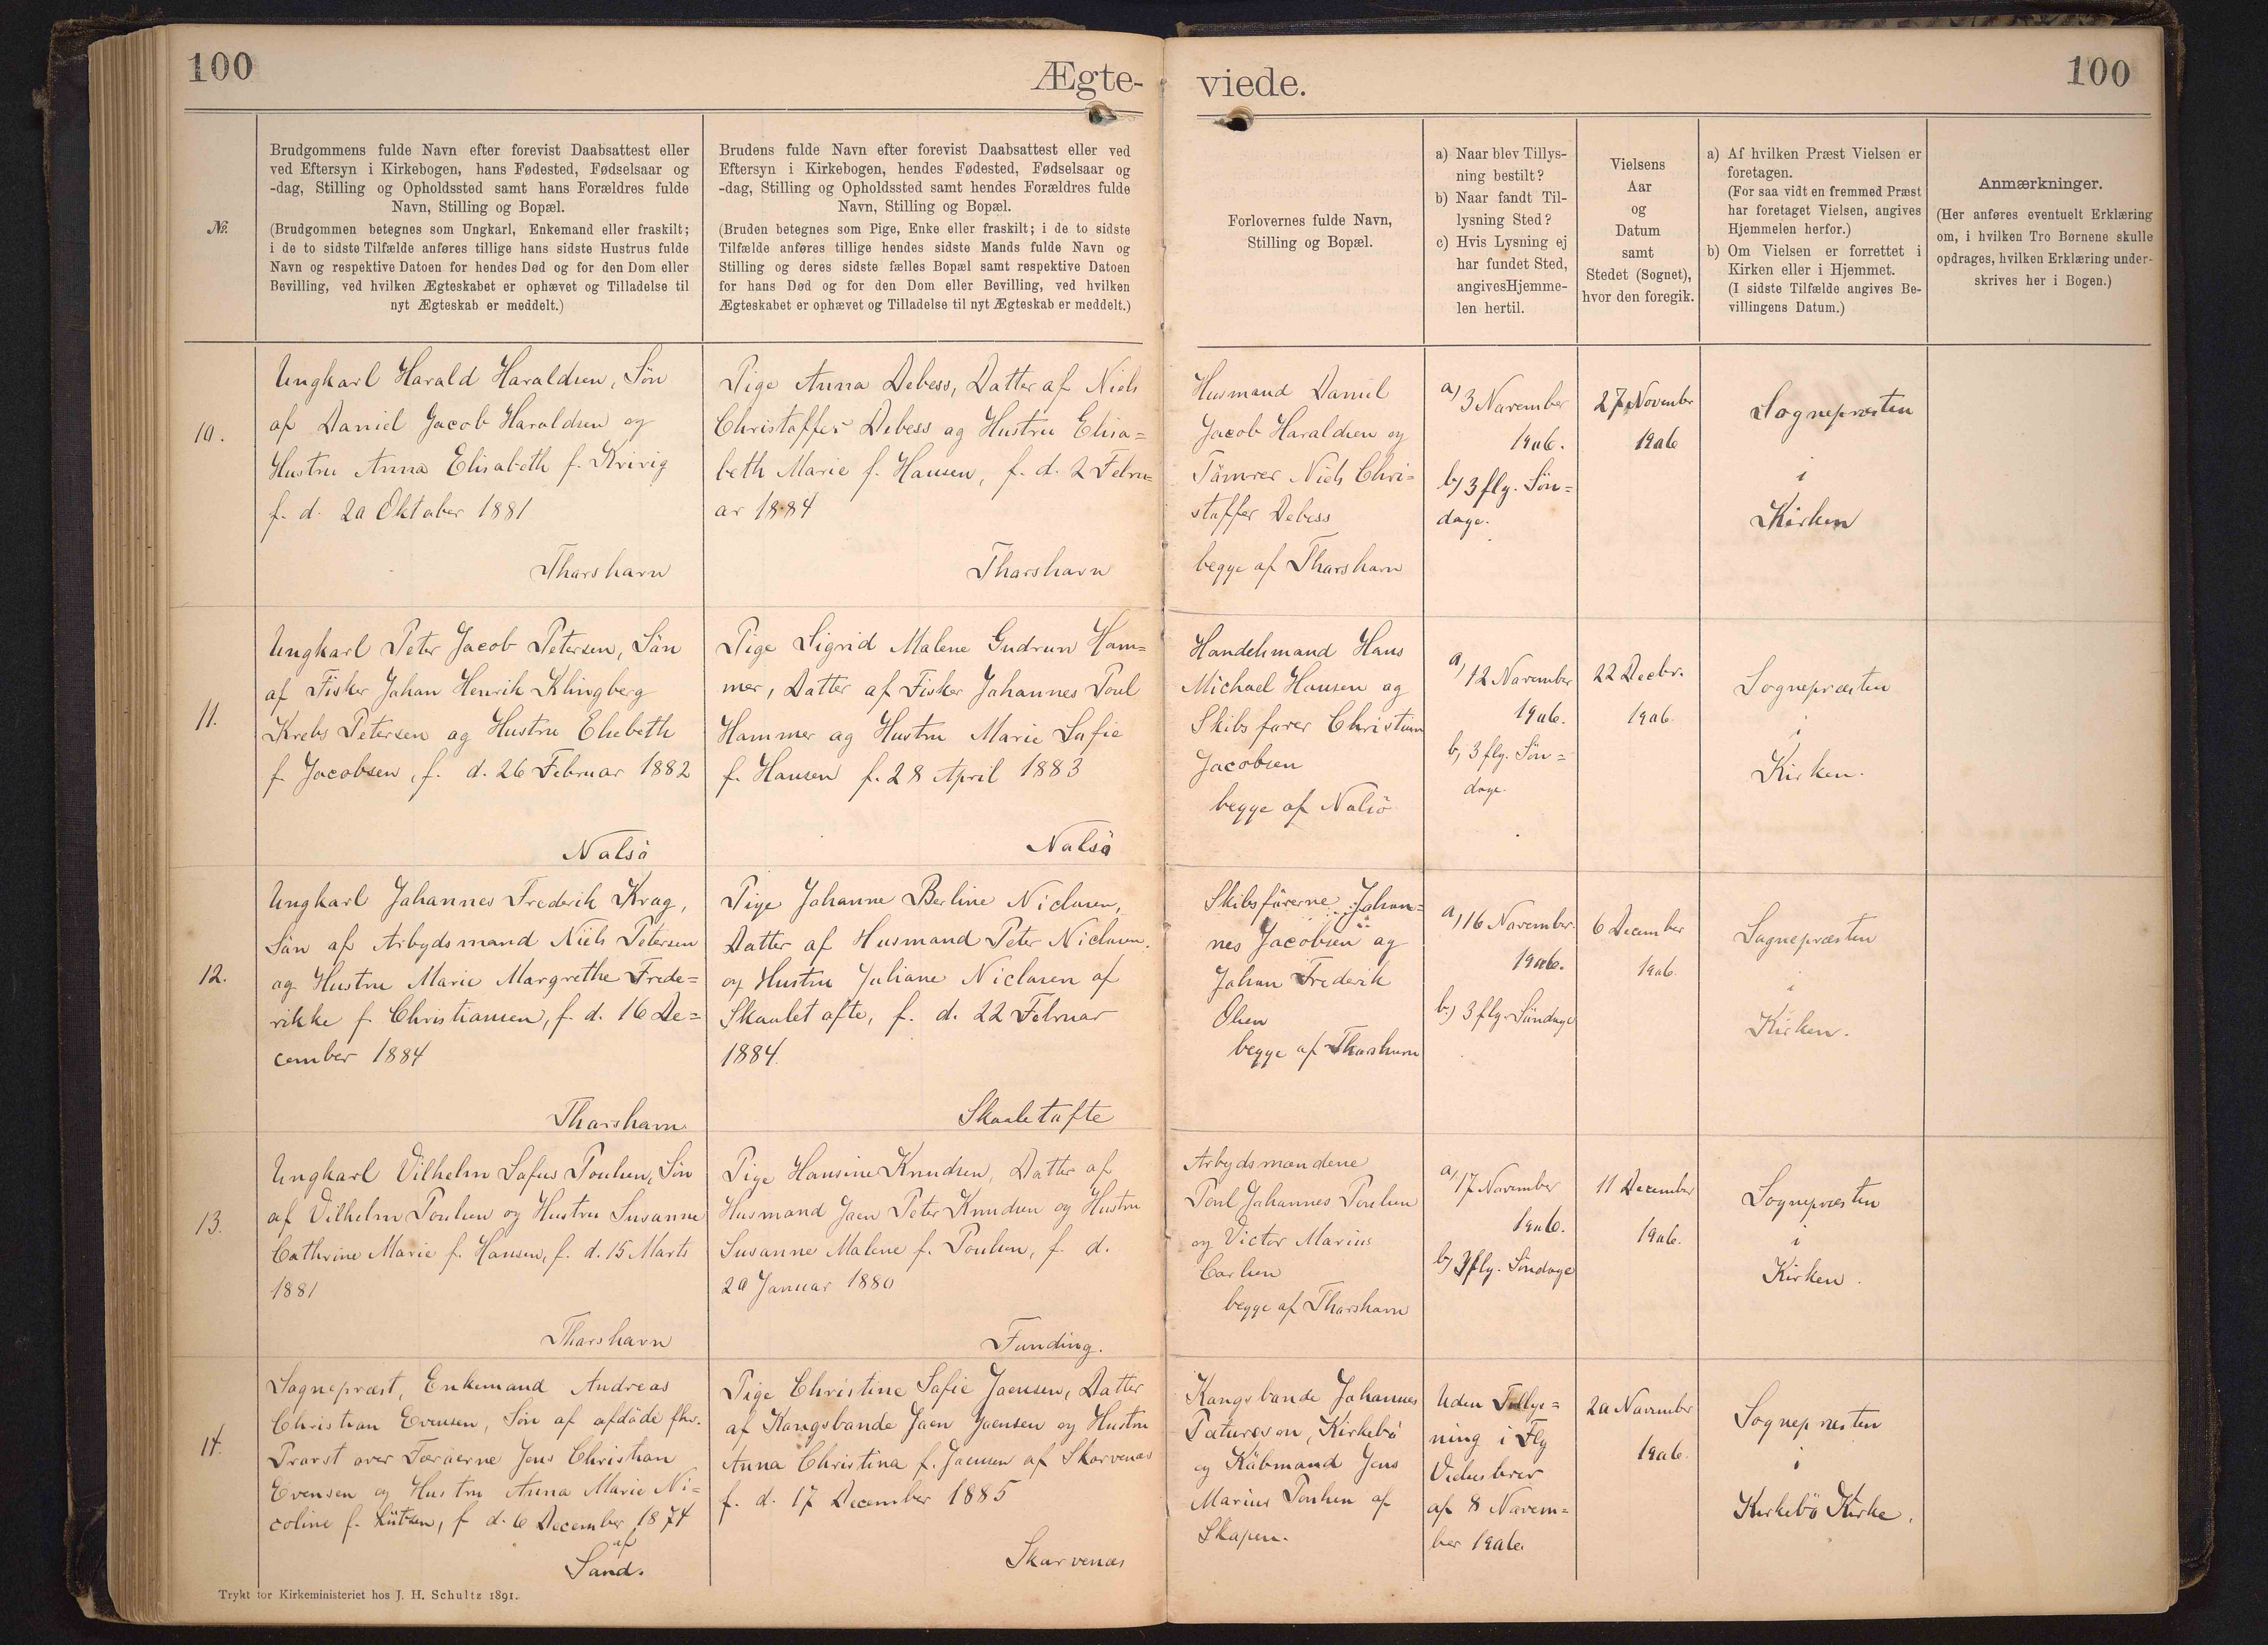 100
Ægte-
viede.
100
No.
Brudgommens fulde Navn efter forevist Daabsattest eller
ved Eftersyn i Kirkebogen, hans Fødested, Fødselsaar og
-dag, Stilling og Opholdssted samt hans Forældres fulde
Navn, Stilling og Bopæl.
(Brudgommen betegnes som Ungkarl, Enkemand eller fraskilt;
i de to sidste Tilfælde anføres tillige hans sidste Hustrus fulde
Navn og respektive Datoen for hendes Død og for den Dom eller
Bevilling, ved hvilken Ægteskabet er ophævet og Tilladelse til
nyt Ægteskab er meddelt.)
Brudens fulde Navn efter forevist Daabsattest eller ved
Eftersyn i Kirkebogen, hendes Fødested, Fødselsaar og
-dag, Stilling og Opholdssted samt hendes Forældres fulde
Navn, Stilling og Bopæl.
(Bruden betegnes som Pige, Enke eller fraskilt; i de to sidste
Tilfælde anføres tillige hendes sidste Mands fulde Navn og
Stilling og deres sidste fælles Bopæl samt respektive Datoen
for hans Død og for den Dom eller Bevilling, ved hvilken
Ægteskabet er ophævet og Tilladelse til nyt Ægteskab er meddelt.)
Forlovernes fulde Navn,
Stilling og Bopæl.
a) Naar blev Tillys-
ning bestilt?
b) Naar fandt Til-
lysning Sted?
c) Hvis Lysning ej
har fundet Sted,
angives Hjemme-
len hertil.
Vielsens
Aar
og
Datum
samt
Stedet (Sognet),
hvor den foregik.
a) Af hvilken Præst Vielsen er
foretagen.
(For saa vidt en fremmed Præst
har foretaget Vielsen, angives
Hjemmelen herfor.)
b) Om Vielsen er forrettet i
Kirken eller i Hjemmet.
(I sidste Tilfælde angives Be-
villingens Datum.)
Anmærkninger.
(Her anføres eventuelt Erklæring
om, i hvilken Tro Børnene skulle
opdrages, hvilken Erklæring under-
skrives her i Bogen.)
10.
Ungkarl Harald Haraldsen, Søn
af Daniel Jacob Haraldsen og
Hustru Anna Elisabeth f. Kvivig
f. d. 20 Oktober 1881
Thorshavn
Pige Anna Debess, Datter af Niels
Christoffer Debess og Hustru Elisa=
beth Marie f. Hansen, f. d. 2 Febru=
ar 1884
Thorshavn
Husmand Daniel
Jacob Haraldsen og
Tömrer Niels Chri=
stoffer Debess
begge af Thorshavn
a) 3 November
1906.
b) 3 flg. Søn=
dage.
27 Novembr
1906
Sognepræsten
i
Kirken
11.
Ungkarl Peter Jacob Petersen, Sön
af Fisker Johan Henrik Klingberg
Krebs Petersen og Hustru Elsebeth
f. Jacobsen, f. d. 26 Februar 1882
Nolsö
Pige Sigrid Malene Gudrun Ham=
mer, Datter af Fisker Johannes Poul
Hammer og Hustru Marie Sofie
f. Hansen f. 28 April 1883
Nolsö
Handelsmand Hans
Michael Hansen og
Skibsfører Christian
Jacobsen
begge af Nolsö
a) 12 November
1906.
b, 3 flg. Søn=
dage.
22 Decbr.
1906.
Sognepræsten
i
Kirken.
12.
Ungkarl Johannes Frederik Krag,
Sön af Arbejdsmand Niels Petersen
og Hustru Marie Margrethe Frede=
rikke f. Christiansen, f. d. 16 De=
cember 1884
Thorshavn
Pige Johanne Berline Niclasen,
Datter af Husmand Peter Niclasen
og Hustru Juliane Niclasen af
Skaaletofte, f. d. 22 Februar
1884.
Skaaletofte
Skibsförerne Johan=
nes Jacobsen og
Johan Frederik
Olsen
begge af Thorshavn
a) 16 November
1906.
b) 3 flg. Söndage
6 December
1906.
Sognepræsten
i
Kirken.
13.
Ungkarl Vilhelm Sofus Poulsen, Søn
af Vilhelm Poulsen og Hustru Susanne
Cathrine Marie f. Hansen, f. d. 15 Marts
1881
Thorshavn
Pige Hansine Knudsen, Datter af
Husmand Joen Peter Knudsen og Hustru
Susanne Malene f. Poulsen, f. d.
20 Januar 1880
Funding.
Arbejdsmændene
Poul Johannes Poulsen
og Victor Marius
Carlsen
begge af Thorshavn
a) 17 November
1906.
b) 3 flg. Søndage
11 December
1906.
Sognepræsten
i
Kirken.
14.
Sognepræst, Enkemand Andreas
Christian Evensen, Søn af afdöde fhv.
Provst over Færöerne Jens Christian
Evensen og Hustru Anna Marie Ni=
coline f. Lützen, f. d. 6 December 1874
af
Sand.
Pige Christine Sofie Joensen, Datter
af Kongsbonde Joen Joensen og Hustru
Anna Christina f. Joensen af Skorvenæs
f. d. 17 December 1885
Skorvenæs
Kongsbonde Johannes
Patursson, Kirkebö
og Köbmand Jens
Marius Poulsen af
Skopen.
Uden Tillys=
ning i Flg
Vielsesbrev
af 8 Novem=
ber 1906
20 November
1906.
Sognepræsten
i
Kirkebö Kirke.
Trykt for Kirkeministeriet hos J. H. Schultz 1891.